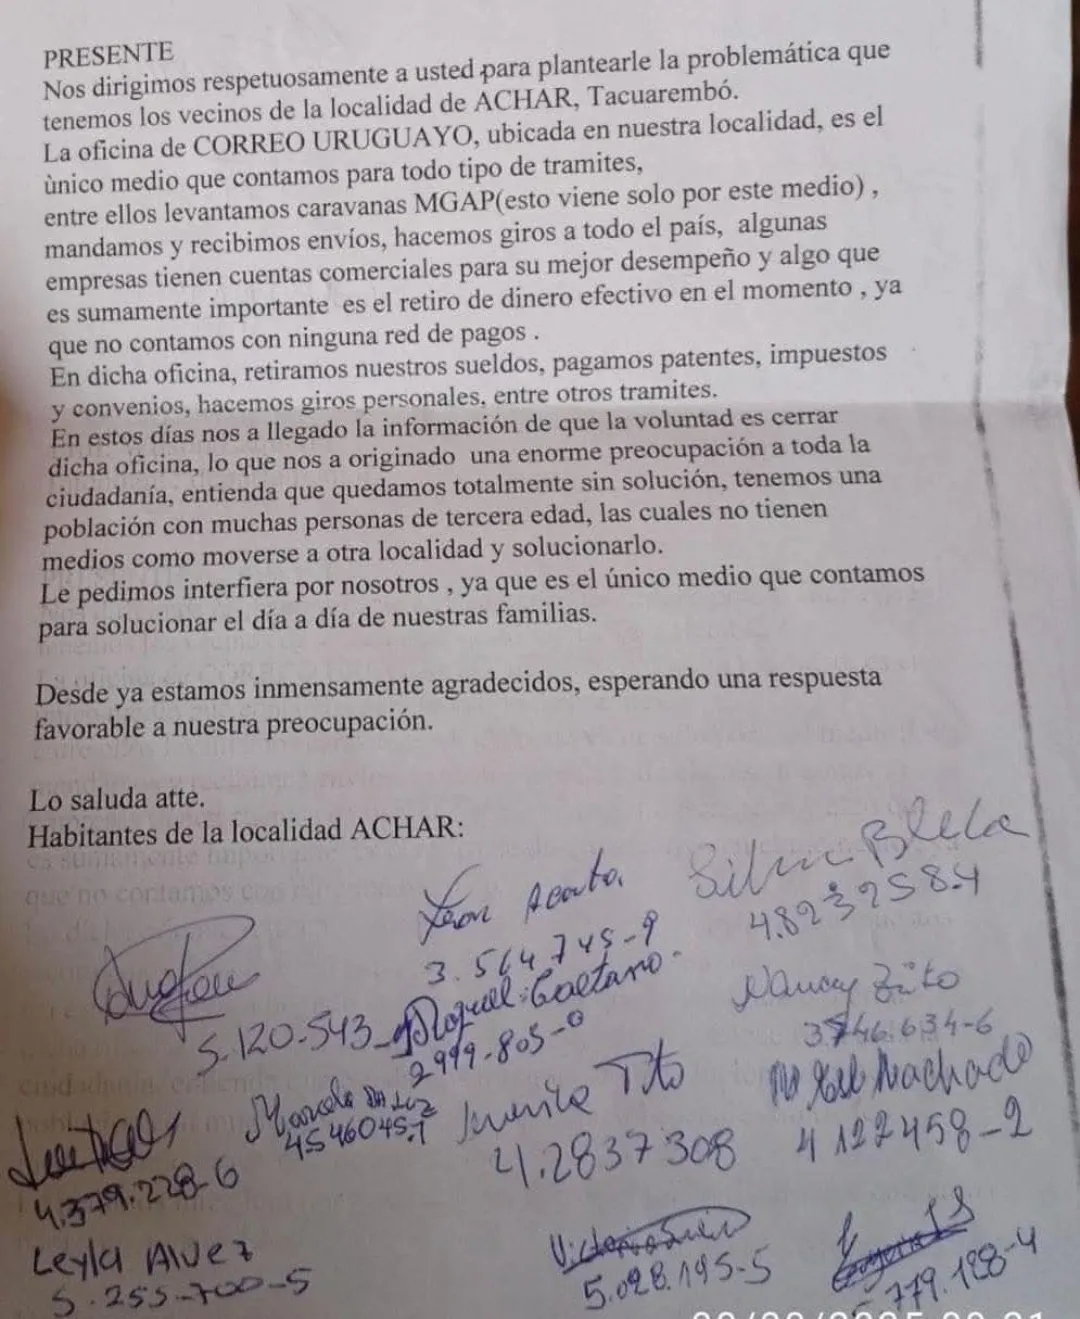 PRESENTE
Nos dirigimos respetuosamente a usted para plantearle la problemática que
tenemos los vecinos de la localidad de ACHAR, Tacuarembó.
La oficina de CORREO URUGUAYO, ubicada en nuestra localidad, es el
ùnico medio que contamos para todo tipo de tramites,
entre ellos levantamos caravanas MGAP(esto viene solo por este medio) ,
mandamos y recibimos envíos, hacemos giros a todo el país, algunas
empresas tienen cuentas comerciales para su mejor desempeño y algo que
es sumamente importante es el retiro de dinero efectivo en el momento , ya
que no contamos con ninguna red de pagos .
En dicha oficina, retiramos nuestros sueldos, pagamos patentes, impuestos
y convenios, hacemos giros personales, entre otros tramites.
En estos días nos a llegado la información de que la voluntad es cerrar
dicha oficina, lo que nos a originado una enorme preocupación a toda la
ciudadanía, entienda que quedamos totalmente sin solución, tenemos una
población con muchas personas de tercera edad, las cuales no tienen
medios como moverse a otra localidad y solucionarlo.
Le pedimos interfiera por nosotros , ya que es el único medio que contamos
para solucionar el día a día de nuestras familias.
Desde ya estamos inmensamente agradecidos, esperando una respuesta
favorable a nuestra preocupación.
Lo saluda atte.
Habitantes de la localidad ACHAR:
3.564.745-9
4.8232584
5.120.543
Raquel Gaetano
2999.805-0
Nancy
3746.634-6
Marcelo Da Luz
4546045.7
Tito
4.2837308
Machado
4122458-2
4.379.228-6
Leyla Alvez
5.255-700-5
5.028.195-5
779.188-4